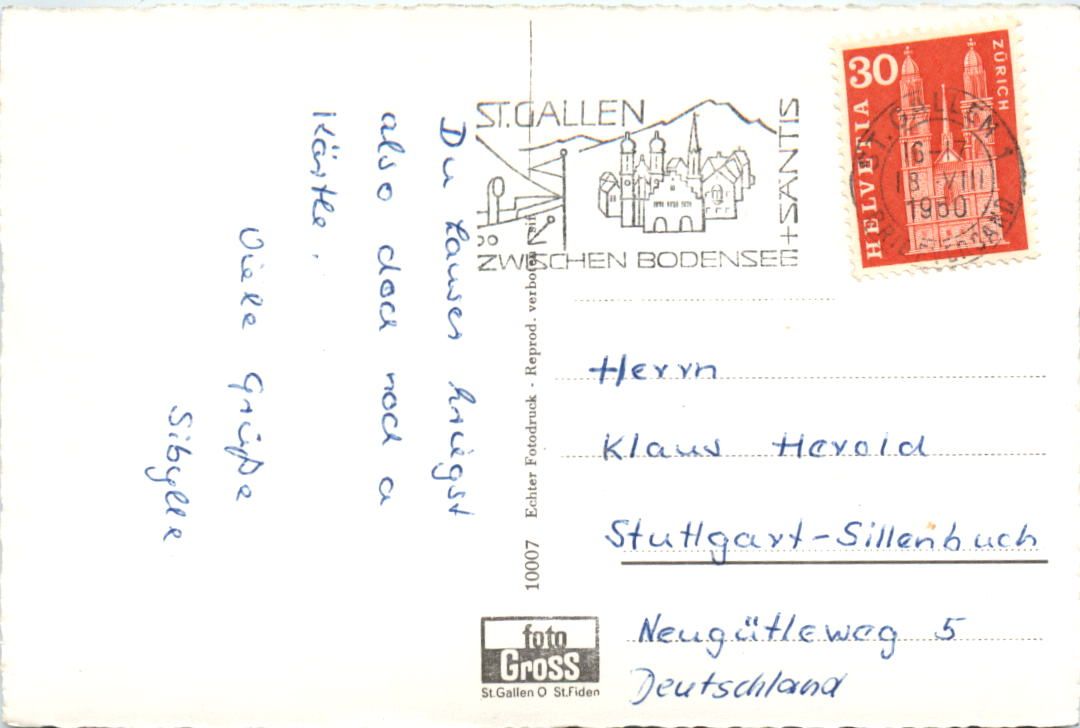 Du Lauser kriegst
also doch noch a
Kärtle.
Viele Grüße
Sibylle
ST. GALLEN
+ SÄNTIS
ZWISCHEN BODENSEE
30
HELVETIA
ZÜRICH
ST. GALLEN 1
16-17
18 VIII
1960
BRIEFVERSAND
Herrn
Klaus Herold
Stuttgart-Sillenbuch
Neugütleweg 5
Deutschland
10007 Echter Fotodruck - Reprod. verboten
foto
Gross
St.Gallen O St.Fiden